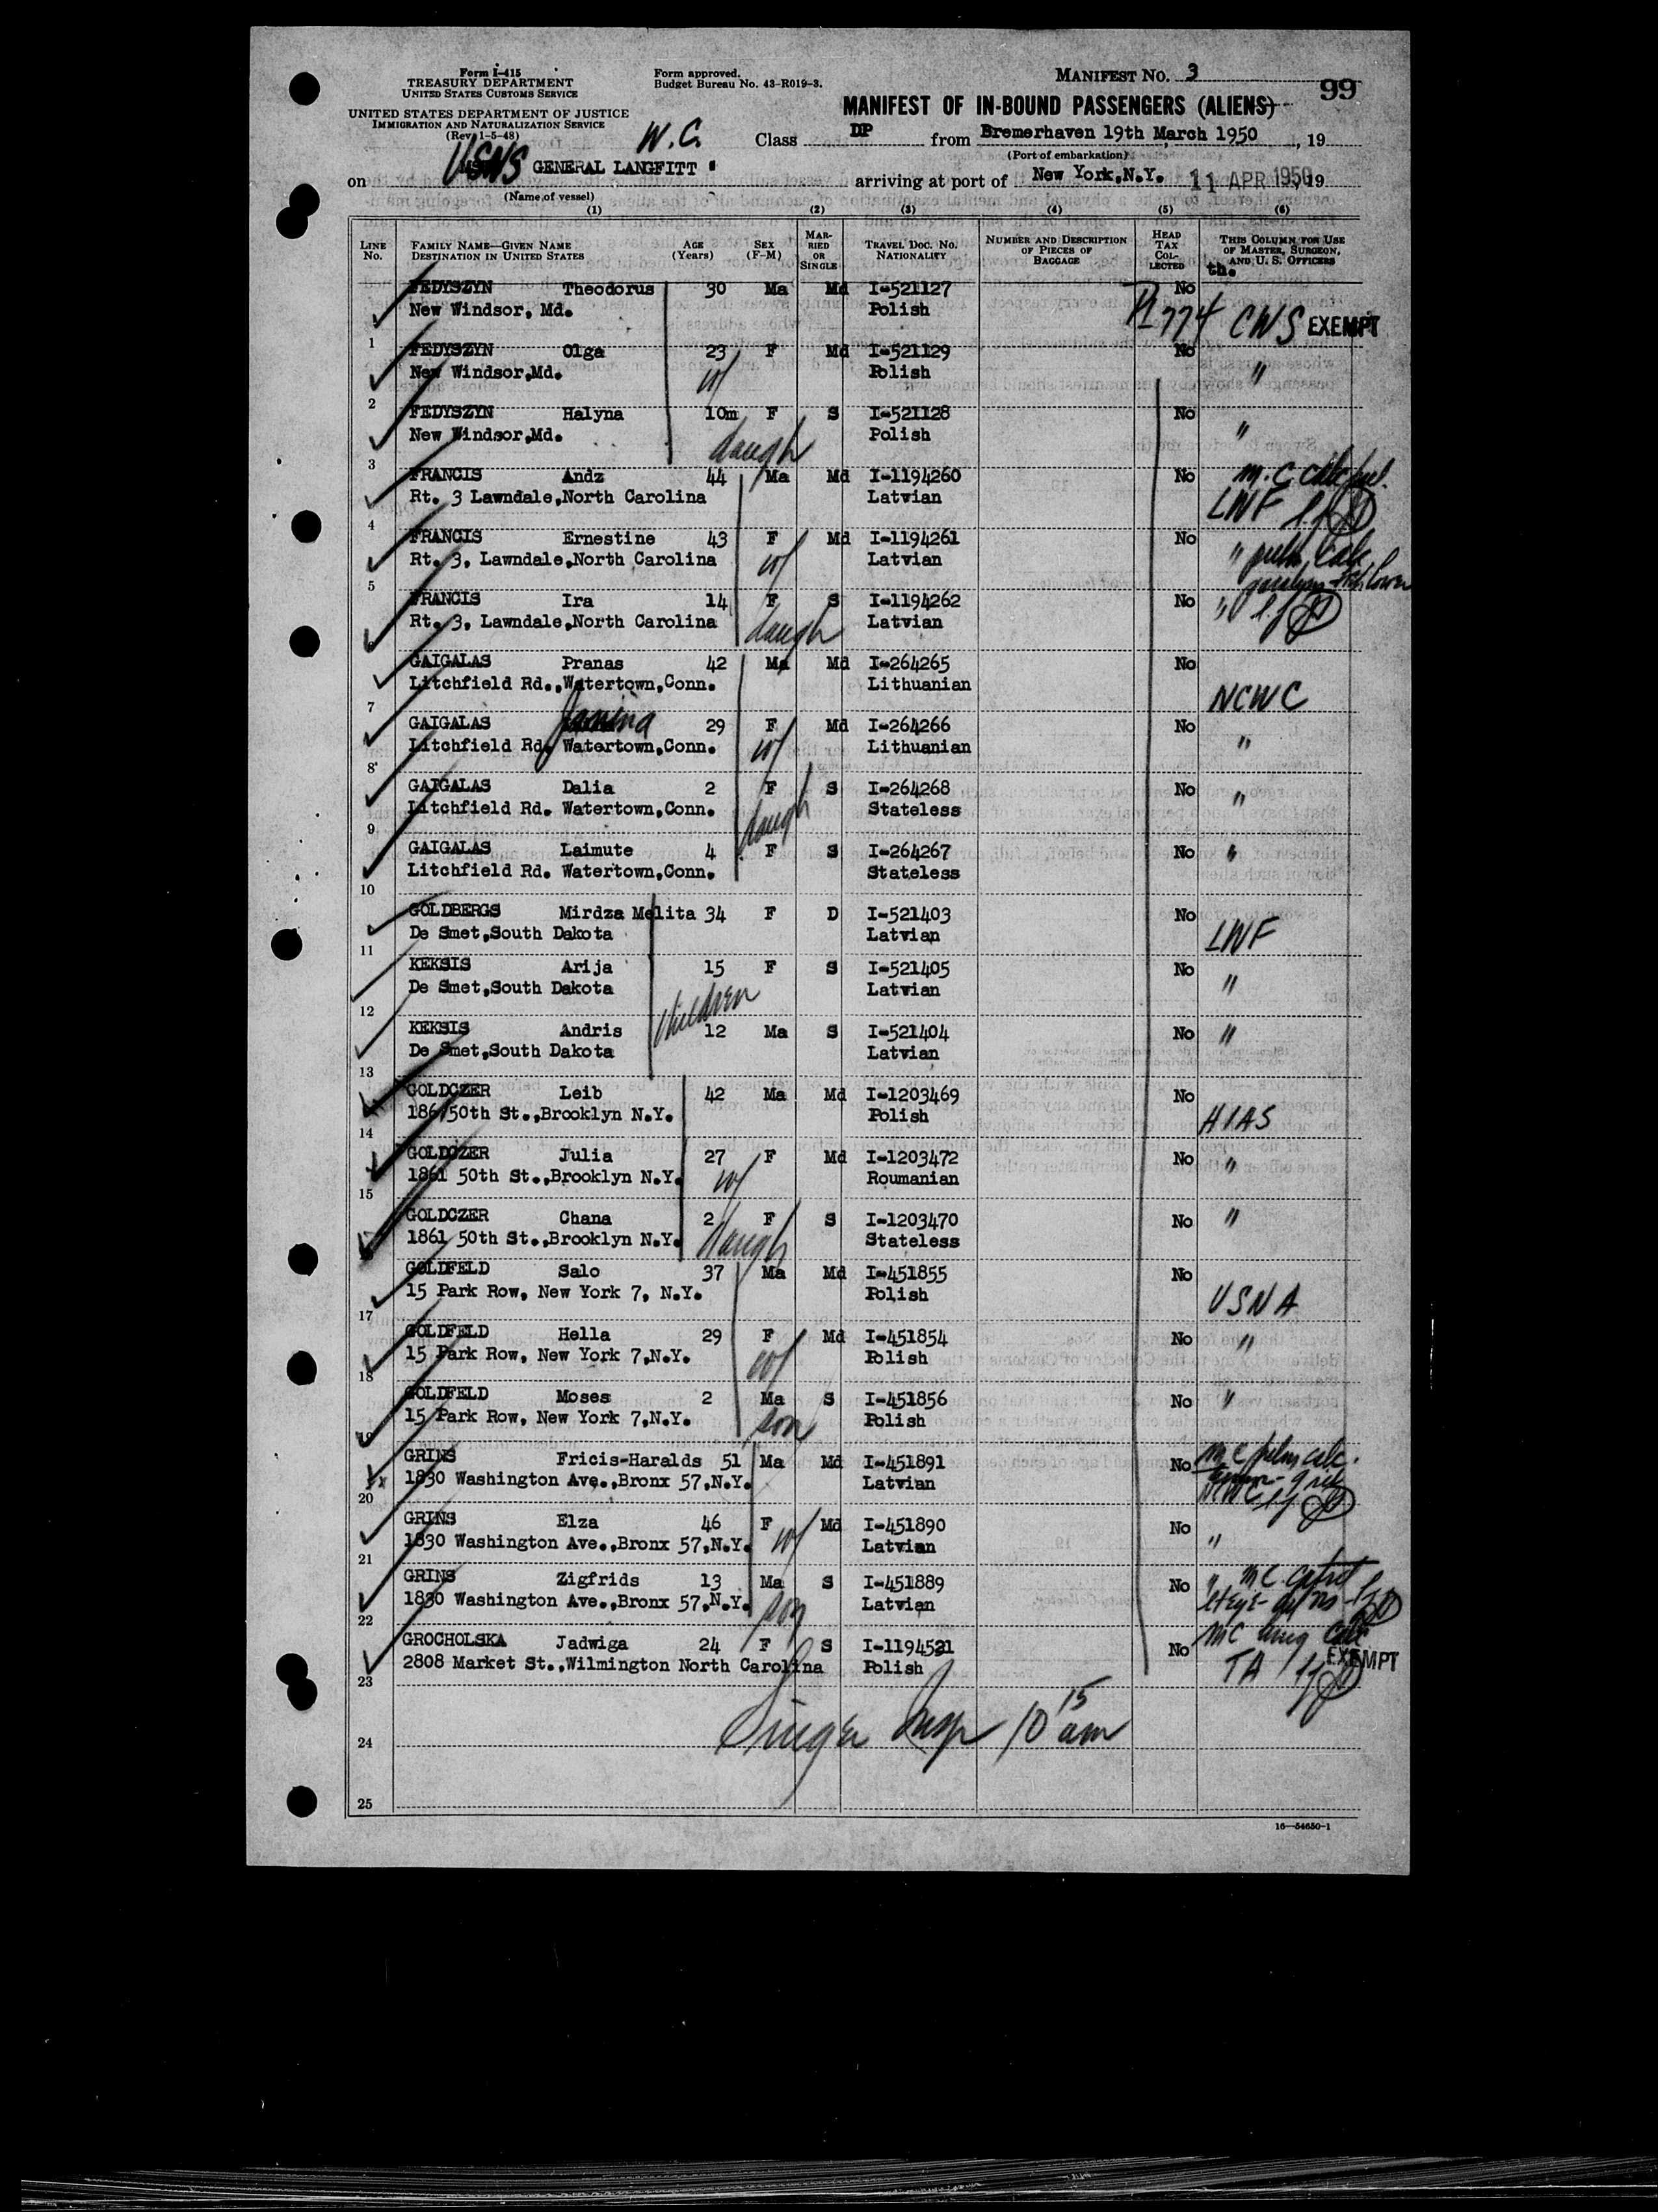 Form I-415
TREASURY DEPARTMENT
UNITED STATES CUSTOMS SERVICE
UNITED STATES DEPARTMENT OF JUSTICE
IMMIGRATION AND NATURALIZATION SERVICE
(Rev. 1-5-48)
Form approved.
Budget Bureau No. 43-R019-3.
W.C.
MANIFEST NO. 3
99
MANIFEST OF IN-BOUND PASSENGERS (ALIENS)
Class DP from Bremerhaven 19th March 1950, 19
(Port of embarkation)
on USNS GENERAL LANGFITT arriving at port of New York, N.Y. 11 APR 1950, 19
(Name of vessel)
(1) (2) (3) (4) (5) (6)
LINE NO. FAMILY NAME—GIVEN NAME DESTINATION IN UNITED STATES AGE (Years) SEX (F-M) MARRIED OR SINGLE TRAVEL DOC. NO. NATIONALITY NUMBER AND DESCRIPTION OF PIECES OF BAGGAGE HEAD TAX COLLECTED THIS COLUMN FOR USE OF MASTER, SURGEON, AND U. S. OFFICERS
th.
FEDYSZYN Theodorus 30 Ma Md I-521127 No
1 New Windsor, Md. Polish 774 CWS EXEMPT
FEDYSZYN Olga 23 F Md I-521129 No
2 New Windsor,Md. W/ Polish "
FEDYSZYN Halyna 10m F S I-521128 No
3 New Windsor,Md. daugh Polish "
FRANCIS Andz 44 Ma Md I-1194260 No M.C.
4 Rt. 3 Lawndale,North Carolina Latvian LWF
FRANCIS Ernestine 43 F Md I-1194261 No
5 Rt. 3, Lawndale,North Carolina W/ Latvian "
FRANCIS Ira 14 F S I-1194262 No "
6 Rt. 3, Lawndale,North Carolina daugh Latvian
GAIGALAS Pranas 42 Ma Md I-264265 No
7 Litchfield Rd.,Watertown,Conn. Lithuanian NCWC
GAIGALAS Janina 29 F Md I-264266 No
8 Litchfield Rd. Watertown,Conn. W/ Lithuanian "
GAIGALAS Dalia 2 F S I-264268 No
9 Litchfield Rd. Watertown,Conn. daugh Stateless "
GAIGALAS Laimute 4 F S I-264267 No "
10 Litchfield Rd. Watertown,Conn. Stateless
GOLDBERGS Mirdza Melita 34 F D I-521403 No
11 De Smet,South Dakota Latvian LWF
KEKSIS Arija 15 F S I-521405 No
12 De Smet,South Dakota children Latvian "
KEKSIS Andris 12 Ma S I-521404 No "
13 De Smet,South Dakota Latvian
GOLDCZER Leib 42 Ma Md I-1203469 No
14 1861 50th St.,Brooklyn N.Y. Polish HIAS
GOLDCZER Julia 27 F Md I-1203472 No "
15 1861 50th St.,Brooklyn N.Y. W/ Roumanian
GOLDCZER Chana 2 F S I-1203470 No "
1861 50th St.,Brooklyn N.Y. daugh Stateless
GOLDFELD Salo 37 Ma Md I-451855 No
17 15 Park Row, New York 7, N.Y. Polish USNA
GOLDFELD Hella 29 F Md I-451854 No "
18 15 Park Row, New York 7,N.Y. W/ Polish
GOLDFELD Moses 2 Ma S I-451856 No "
19 15 Park Row, New York 7,N.Y. son Polish
GRINS Fricis-Haralds 51 Ma Md I-451891 No MC pulm calc.
20 1830 Washington Ave.,Bronx 57,N.Y. Latvian NCWC
GRINS Elza 46 F Md I-451890 No
21 1830 Washington Ave.,Bronx 57,N.Y. W/ Latvian "
GRINS Zigfrids 13 Ma S I-451889 No " M.C.
22 1830 Washington Ave.,Bronx 57,N.Y. son Latvian
GROCHOLSKA Jadwiga 24 F S I-1194521 No MC lung calc
23 2808 Market St.,Wilmington North Carolina Polish TA EXEMPT
24 Singer Insp 10 15 am
25
16—54650-1